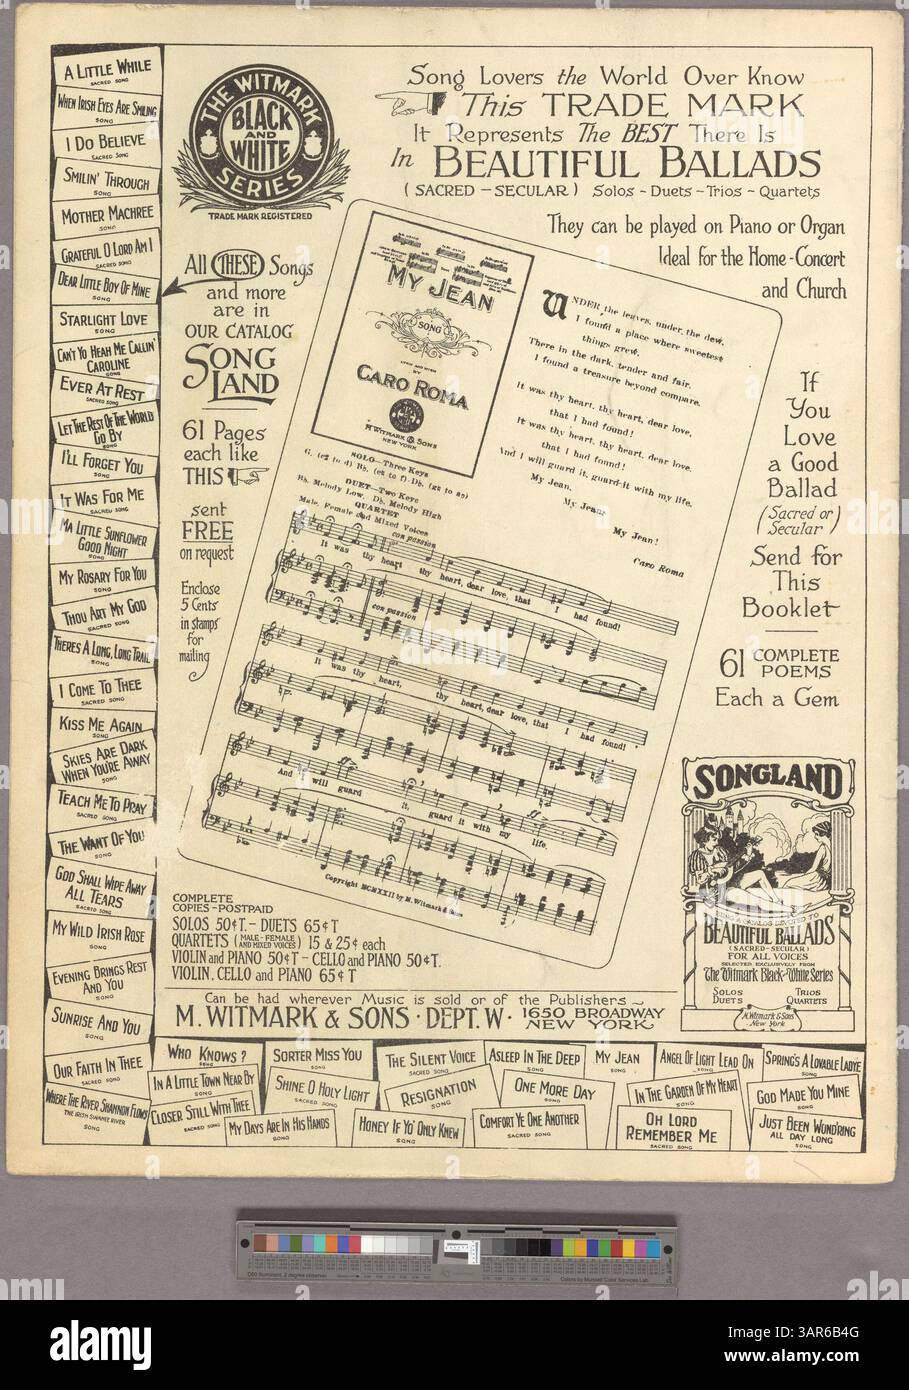 A LITTLE WHILE
SACRED SONG
WHEN IRISH EYES ARE SMILING
SONG
I DO BELIEVE
SACRED SONG
SMILIN' THROUGH
SONG
MOTHER MACHREE
SONG
GRATEFUL O LORD AM I
SACRED SONG
DEAR LITTLE BOY OF MINE
SONG
STARLIGHT LOVE
SONG
CAN'T YO HEAH ME CALLIN'
CAROLINE
SONG
EVER AT REST
SACRED SONG
LET THE REST OF THE WORLD
GO BY
SONG
I'LL FORGET YOU
SONG
IT WAS FOR ME
SACRED SONG
MA LITTLE SUNFLOWER
GOOD NIGHT
SONG
MY ROSARY FOR YOU
SONG
THOU ART MY GOD
SACRED SONG
THERE'S A LONG, LONG TRAIL
SONG
I COME TO THEE
SACRED SONG
KISS ME AGAIN
SONG
SKIES ARE DARK
WHEN YOU'RE AWAY
SONG
TEACH ME TO PRAY
SACRED SONG
THE WANT OF YOU
SONG
GOD SHALL WIPE AWAY
ALL TEARS
SACRED SONG
MY WILD IRISH ROSE
SONG
EVENING BRINGS REST
AND YOU
SONG
SUNRISE AND YOU
SONG
OUR FAITH IN THEE
SACRED SONG
WHERE THE RIVER SHANNON FLOWS
THE IRISH SWANEE RIVER
SONG
THE WITMARK
BLACK
AND
WHITE
SERIES
TRADE MARK REGISTERED
Song Lovers the World Over Know
This TRADE MARK
It Represents The BEST There Is
In BEAUTIFUL BALLADS
(SACRED - SECULAR) Solos - Duets - Trios - Quartets
They can be played on Piano or Organ
Ideal for the Home - Concert
and Church
All THESE Songs
and more
are in
OUR CATALOG
SONG
LAND
61 Pages
each like
THIS
sent
FREE
on request
Enclose
5 Cents
in stamps
for
mailing
MY JEAN
SONG
LYRIC AND MUSIC
BY
CARO ROMA
M. WITMARK & SONS
NEW YORK
UNDER the leaves, under the dew,
I found a place where sweetest
things grew.
There in the dark, tender and fair,
I found a treasure beyond compare.
It was thy heart, thy heart, dear love,
that I had found!
It was thy heart, thy heart, dear love,
that I had found!
And I will guard it, guard it with my life,
My Jean,
My Jean!
My Jean!
Caro Roma
SOLO - Three Keys
G, (c♯ to d) B♭, (e♯ to f) D♭, (g♯ to a♭)
DUET - Two Keys
B♭, Melody Low, D♭, Melody High
QUARTET
Male, Female and Mixed Voices
con passion
It was thy heart, thy heart, dear love, that I had found!
con passion
It was thy heart, thy heart, dear love, that I had found!
And I will guard it, guard it with my life,
Copyright MCMXXII by M. Witmark & Sons
If
You
Love
a Good
Ballad
(Sacred or
Secular)
Send for
This
Booklet
61 COMPLETE
POEMS
Each a Gem
SONGLAND
BEING A CATALOG DEVOTED TO
BEAUTIFUL BALLADS
(SACRED - SECULAR)
FOR ALL VOICES
SELECTED EXCLUSIVELY FROM
The Witmark Black & White Series
SOLOS TRIOS
DUETS QUARTETS
M. Witmark & Sons
New York
COMPLETE
COPIES - POSTPAID
SOLOS 50¢ - DUETS 65¢
QUARTETS (MALE - FEMALE AND MIXED VOICES) 15 & 25¢ each
VIOLIN and PIANO 50¢ - CELLO and PIANO 50¢
VIOLIN, CELLO and PIANO 65¢
Can be had wherever Music is sold or of the Publishers
M. WITMARK & SONS · DEPT. W · 1650 BROADWAY
NEW YORK
WHO KNOWS?
SONG
SORTER MISS YOU
SONG
THE SILENT VOICE
SACRED SONG
ASLEEP IN THE DEEP
SONG
MY JEAN
SONG
ANGEL OF LIGHT LEAD ON
SACRED SONG
SPRING'S A LOVABLE LADYE
SONG
IN A LITTLE TOWN NEAR BY
SONG
SHINE O HOLY LIGHT
SACRED SONG
RESIGNATION
SONG
ONE MORE DAY
SONG
IN THE GARDEN OF MY HEART
SONG
GOD MADE YOU MINE
SONG
CLOSER STILL WITH THEE
SACRED SONG
MY DAYS ARE IN HIS HANDS
SONG
HONEY IF YO' ONLY KNEW
SONG
COMFORT YE ONE ANOTHER
SACRED SONG
OH LORD
REMEMBER ME
SACRED SONG
JUST BEEN WOND'RING
ALL DAY LONG
SONG
alamy
Image ID: 3AR6B4G
www.alamy.com